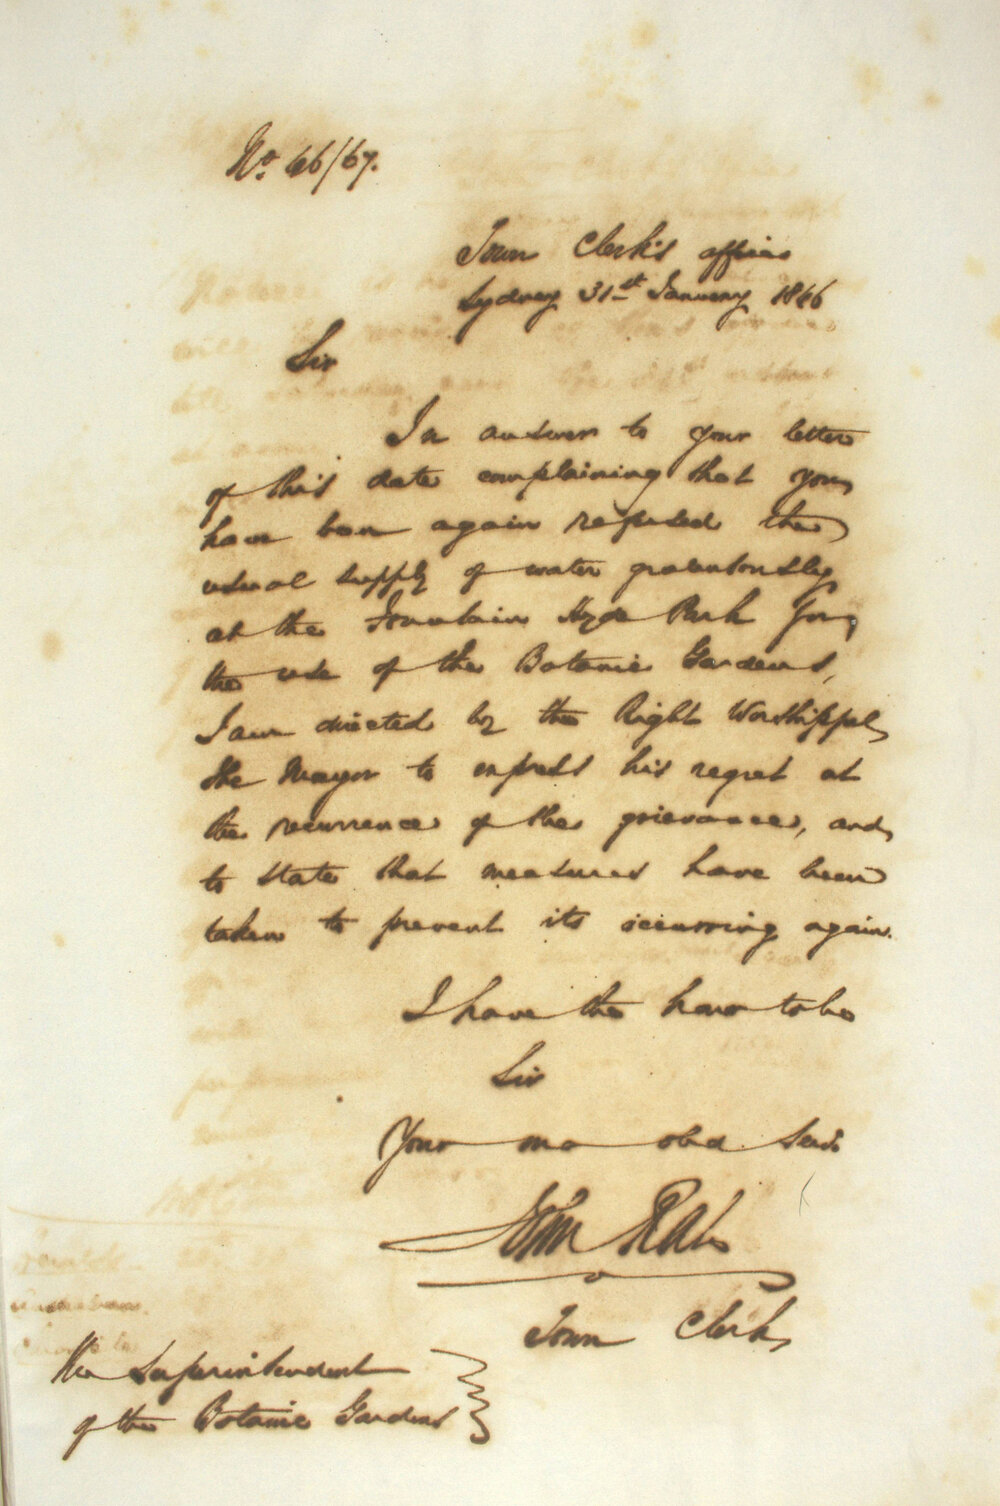 No. 46/67.
Town Clerk's office
Sydney 31st January 1846
Sir
In answer to your letter
of this date complaining that you
have been again refused the
usual supply of water gratuitously
at the Fountain Hyde Park for
the use of the Botanic Gardens,
I am directed by the Right Worshipful
the Mayor to express his regret at
the recurrence of the grievance, and
to state that measures have been
taken to prevent its occurring again.
I have the honor to be
Sir
Your mo obed Servt
John Rae
Town Clerk
The Superintendent
of the Botanic Gardens